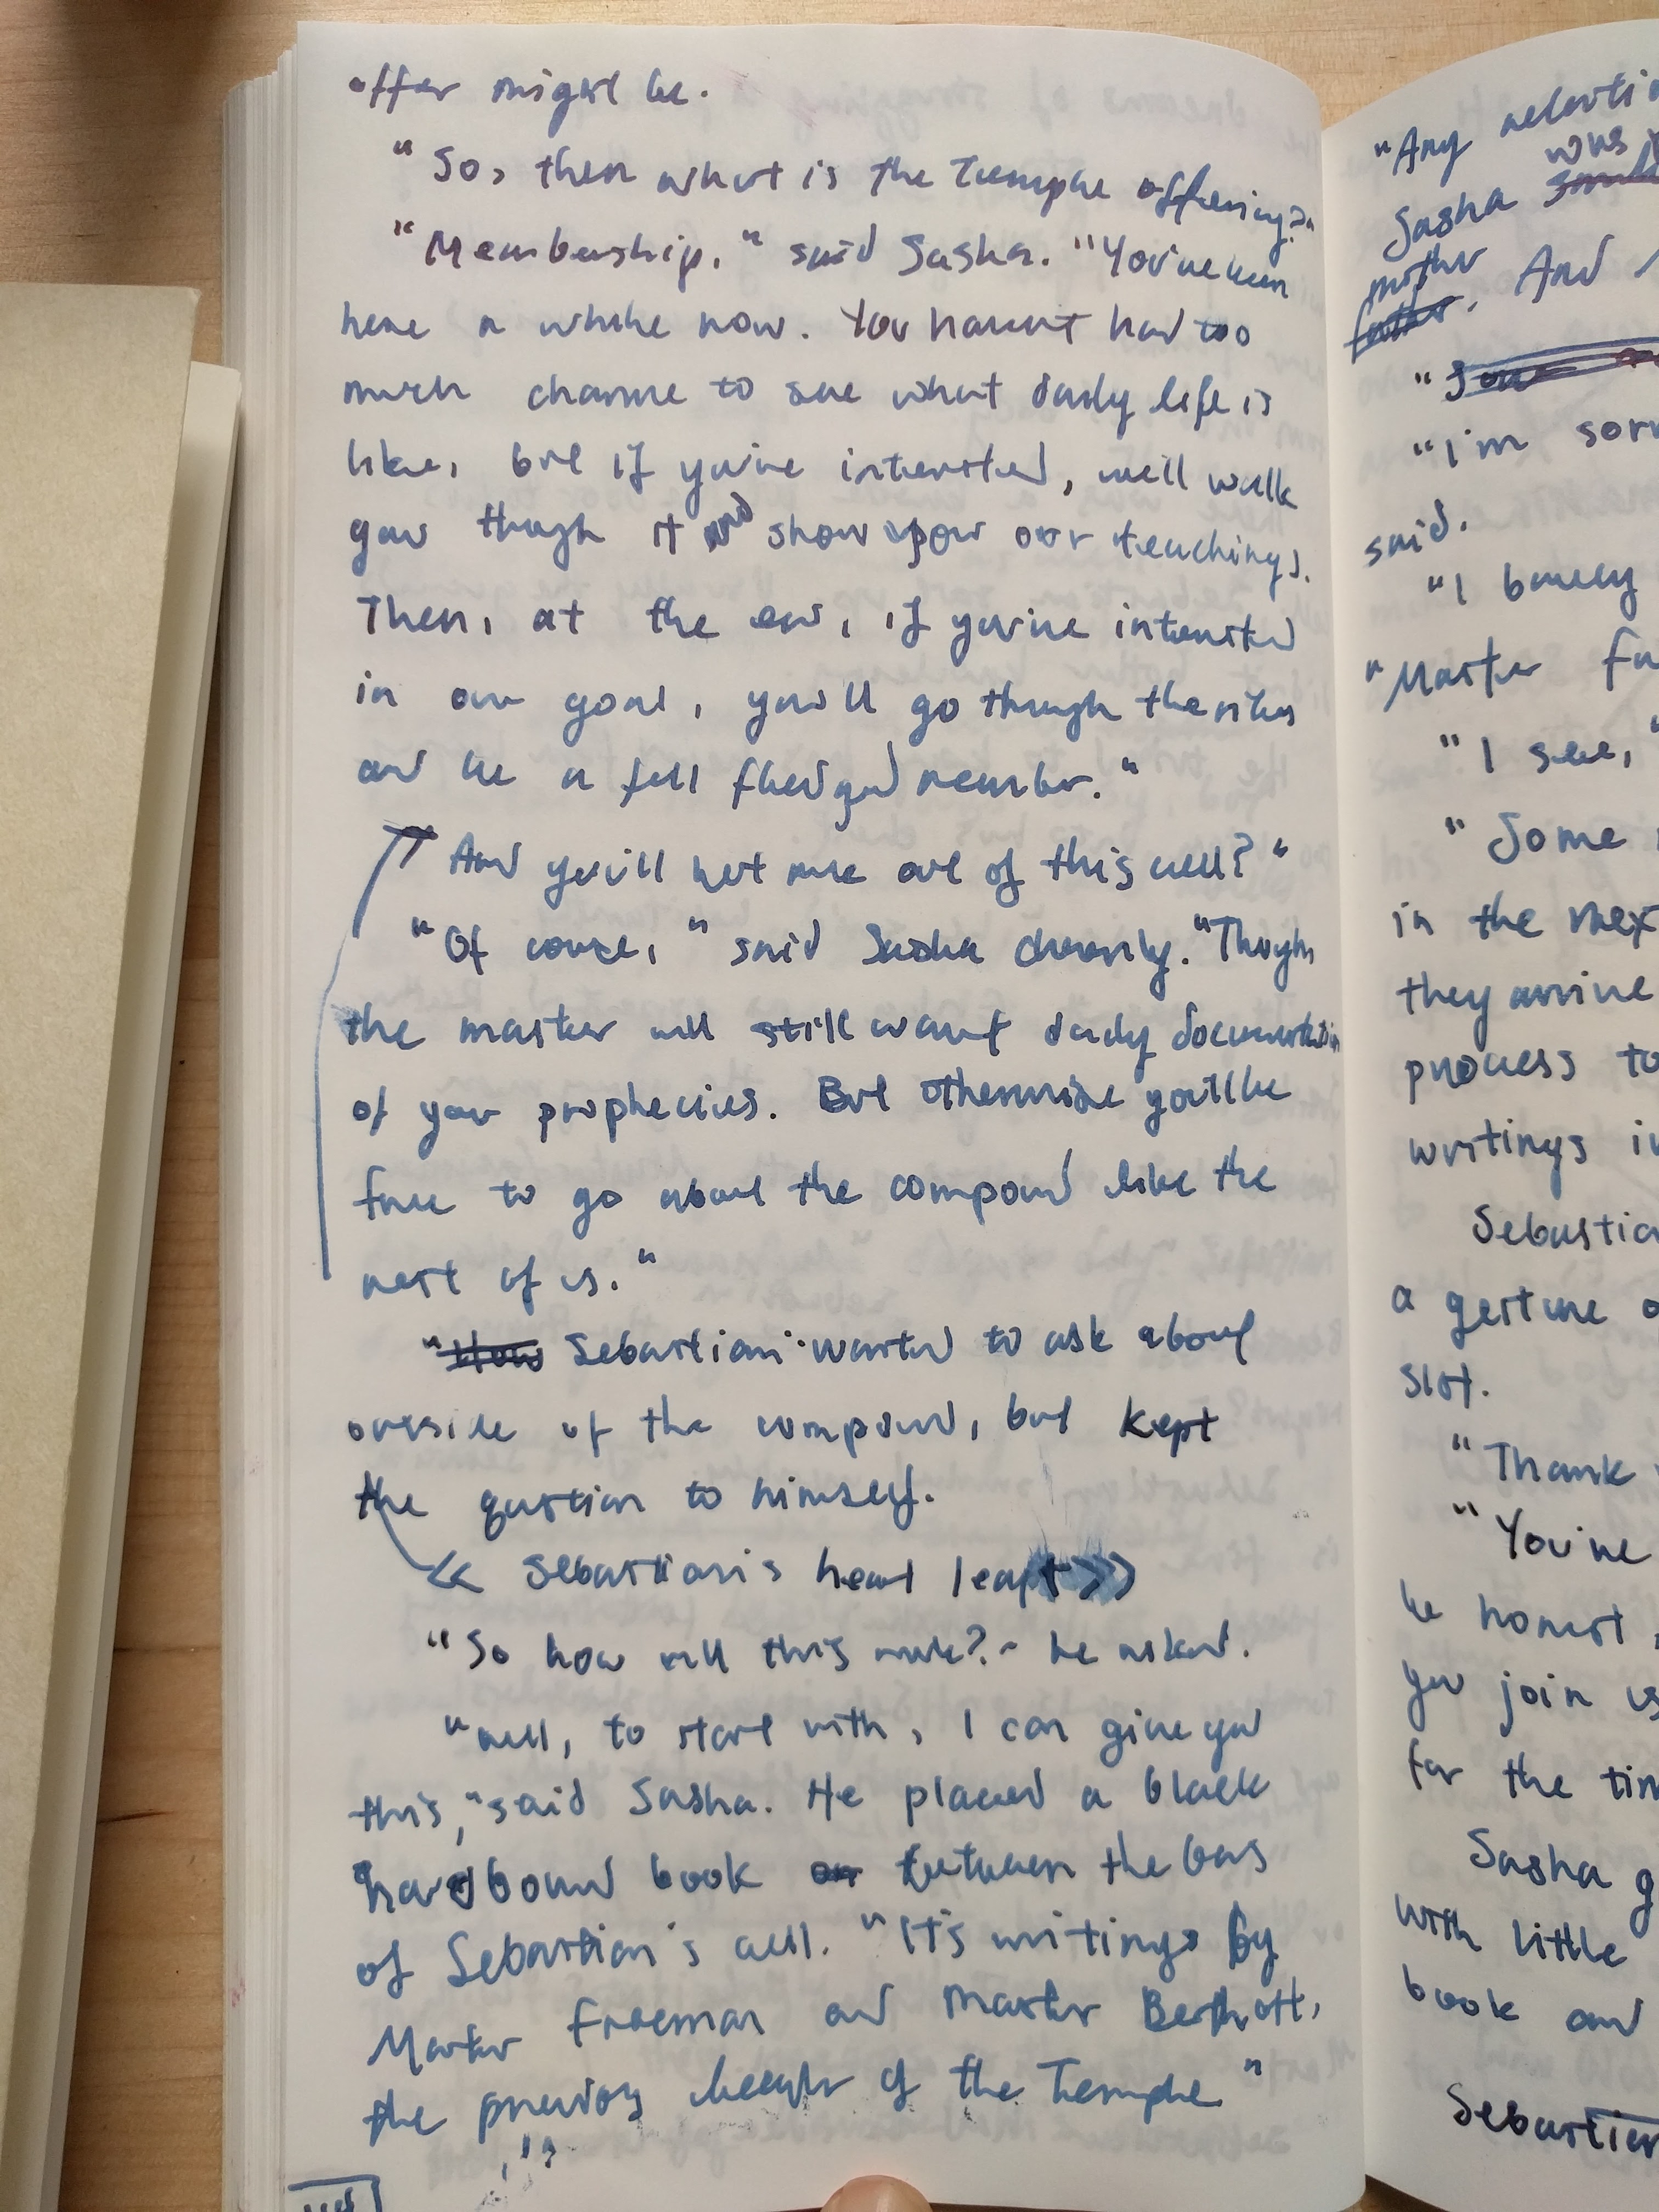 offer might be.
"So, then what is the Temple offering?"
"Membership," said Sasha. "You've been
here a while now. You haven't had too
much chance to see what daily life is
like, but if you're interested, we'll walk
you though it and show you our teachings.
Then, at the end, if you're interested
in our goal, you'll go through the rites
and be a full fledged member."
"And you'll let me out of this cell?"
"Of course," said Sasha cheerily. "Though
the master will still want daily documentation
of your prophecies. But otherwise you'll be
free to go about the compound like the
rest of us."
"How Sebastian wanted to ask about
outside of the compound, but kept
the question to himself.
<< Sebastian's heart leapt >>
"So how will this work?" he asked.
"Well, to start with, I can give you
this," said Sasha. He placed a black
hardbound book on between the bars
of Sebastian's cell. "It's writings by
Master Freeman and Master
the previous of the Temple"
"Any
was
Sasha
mother
father. And
"I'm
said.
"I barely
"Master
"I see,"
"Some
in the
they arrive
process to
writings
Sebastian
a gesture
slot.
"Thank
"You're
be honest,
you join us
for the
Sasha
with little
book and
Sebastian